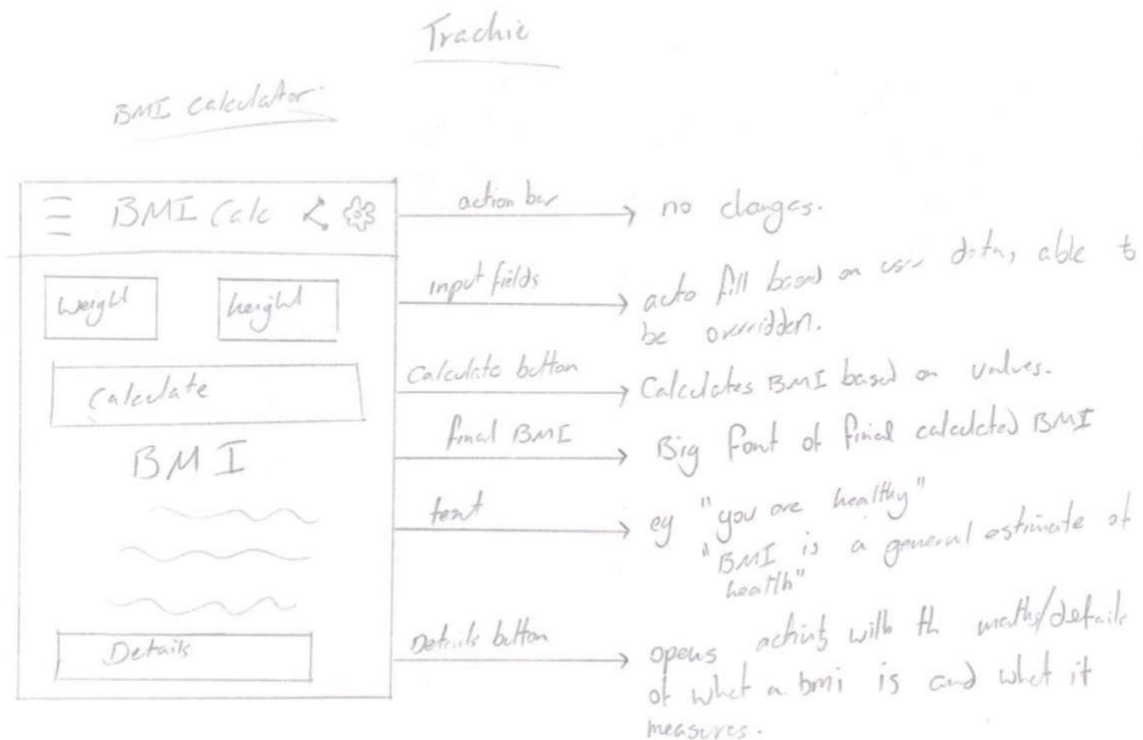 Trachie
BMI Calculator.
BMI Calc
action bar
no changes.
weight
height
input fields
auto fill based on user data, able to
be overridden.
Calculate
Calculate button
Calculates BMI based on values.
BMI
final BMI
Big font of final calculated BMI
text
eg "you are healthy"
"BMI is a general estimate of
health"
Details
Details button
opens activity with th maths/details
of what a bmi is and what it
measures.